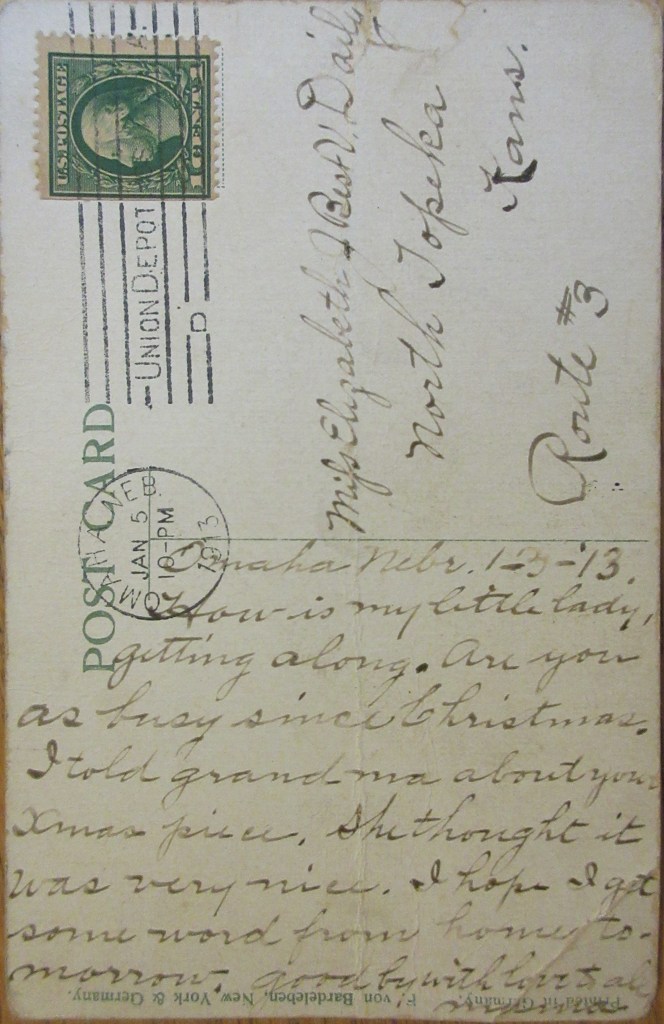 POST CARD
U.S. POSTAGE
1 CENT 1
OMAHA, NEB
JAN 5
10-PM
1913
UNION DEPOT
D
Miss Elizabeth Daily
North Topeka
Kans.
Route #3
Omaha Nebr. 1-5-'13.
How is my little lady,
getting along. Are you
as busy since Christmas.
I told grand ma about your
Xmas piece. She thought it
was very nice. I hope I get
some word from home to-
morrow. Good by with love to all
Printed in Germany.
F. von Bardeleben, New York & Germany.